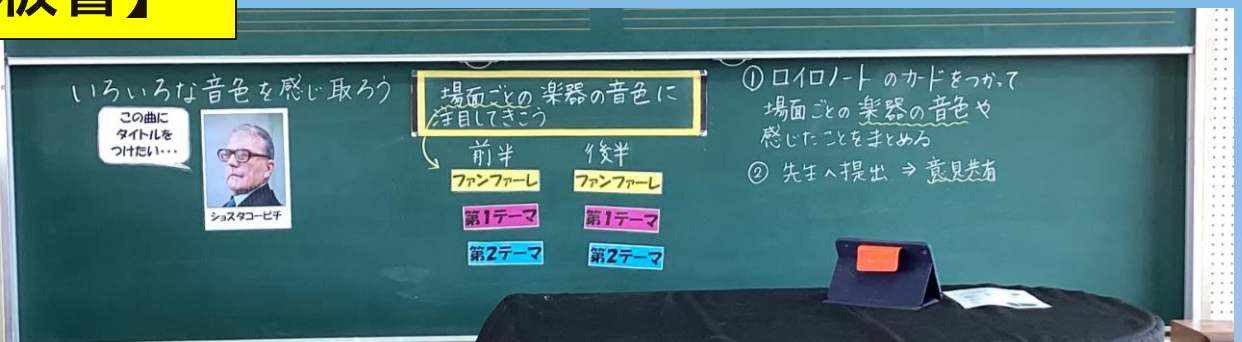 板書】
いろいろな音色を感じ取ろう
この曲に
タイトルを
つけたい…
ショスタコービチ
場面ごとの楽器の音色に
注目してきこう
前半 後半
ファンファーレ ファンファーレ
第1テーマ 第1テーマ
第2テーマ 第2テーマ
① ロイロノートのカードをつかって
場面ごとの楽器の音色や
感じたことをまとめる
② 先生へ提出 ⇒ 意見共有